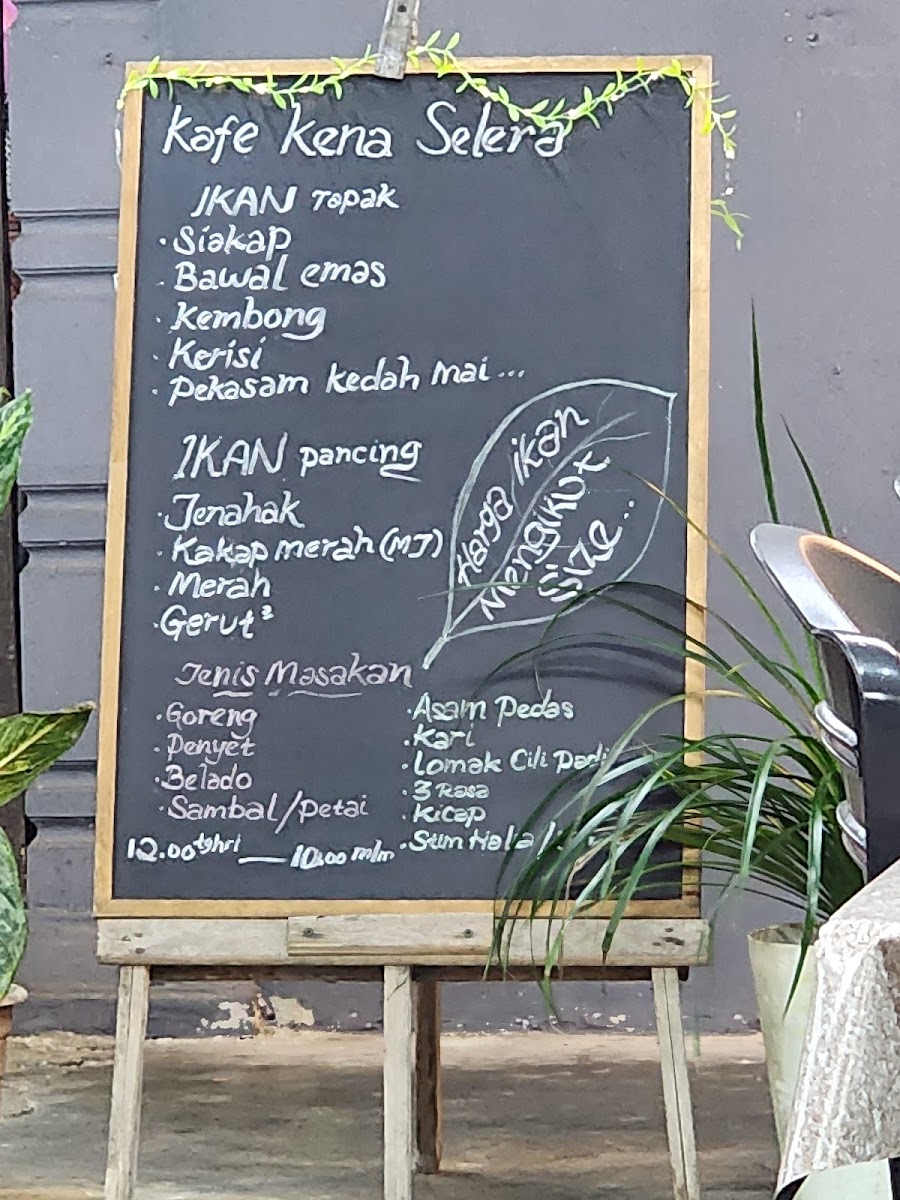 Kafe Kena Selera
IKAN Tapak
· Siakap
· Bawal emas
· Kembong
· Kerisi
· Pekasam kedah mai...
IKAN pancing
· Jenahak
· Kakap merah (MJ)
· Merah
· Gerut²
Harga ikan
Mengikut
Size...
Jenis Masakan
· Goreng
· Penyet
· Belado
· Sambal/Petai
· Asam Pedas
· Kari
· Lomak Cili Padi
· 3 Rasa
· Kicap
· Sum Hala/
12.00 tghri — 10.00 mlm